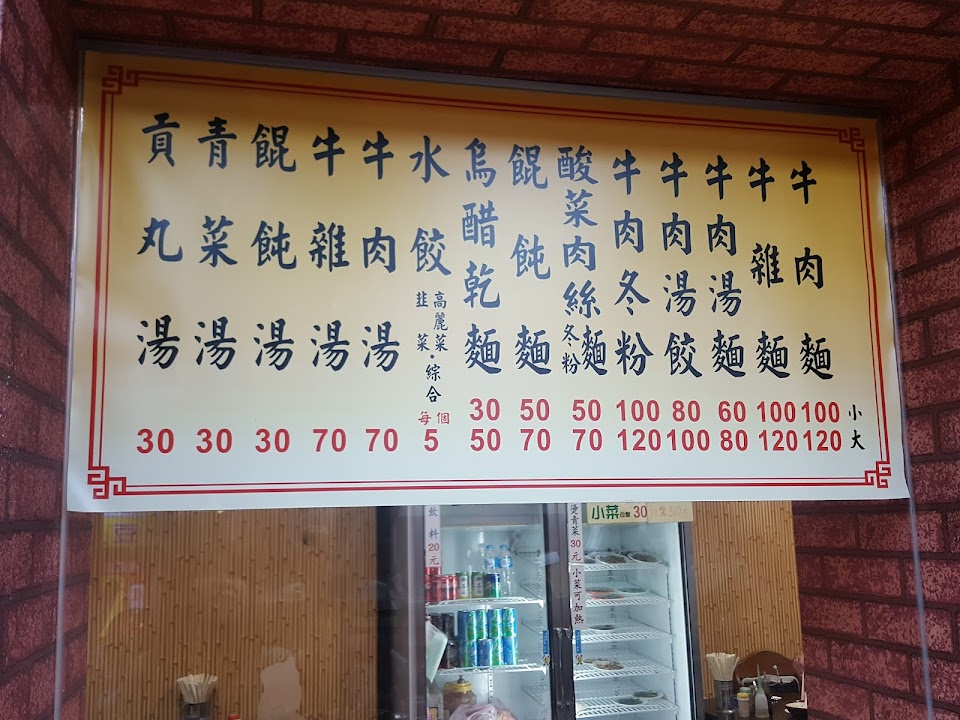 牛肉麵 100 120
牛雜麵 100 120
牛肉湯麵 60 80
牛肉湯餃 80 100
牛肉冬粉 100 120
酸菜肉絲麵 冬粉 50 70
餛飩麵 50 70
烏醋乾麵 30 50
水餃 高麗菜・韭菜・綜合 每個 5
牛肉湯 70
牛雜湯 70
餛飩湯 30
青菜湯 30
貢丸湯 30
小
大
飲料20元
燙青菜30元
小菜可加熱
小菜 30